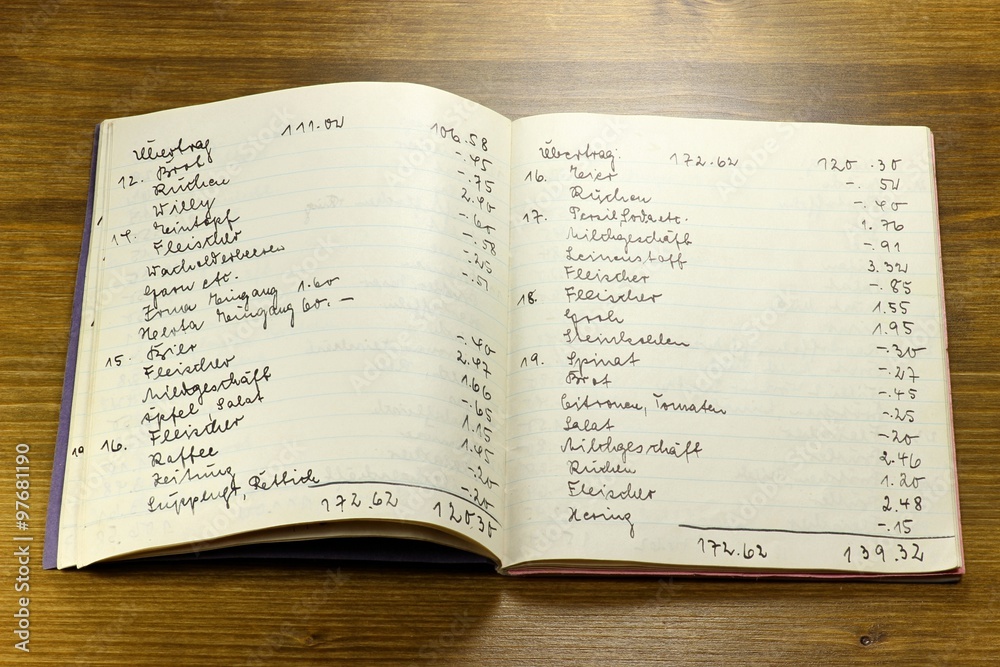 Übertrag 111.02 106.58
12. Brot -.45
Kuchen -.75
Willy 2.40
Eintopf -.60
14. Fleischer -.58
Wacholderbeeren -.25
Garn etc. -.51
Irma Eingang 1.60
Herta Eingang 60.-
Eier -.40
15. Fleischer 2.47
Milchgeschäft 1.66
Äpfel, Salat -.65
Fleischer 1.15
16. Kaffee 1.45
Zeitung -.20
Suppengrt, Rettich -.20
172.62 120.30
Übertrag: 172.62 120.30
16. Eier -.54
Kuchen -.40
17. Persil, Soda etc. 1.76
Milchgeschäft -.91
Leinenstoff 3.32
Fleischer -.85
18. Fleischer 1.55
1.95
Steinkohlen -.30
19. Spinat -.27
Brot -.45
Citronen, Tomaten -.25
Salat -20
Milchgeschäft 2.46
Kuchen 1.20
Fleischer 2.48
Hering -.15
172.62 139.32
Adobe Stock | #97681190